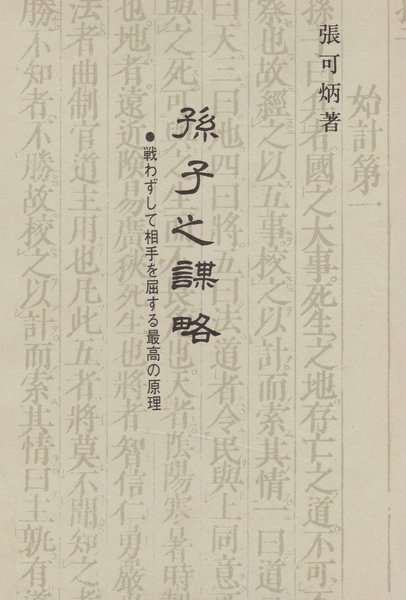 張可炳著
孫子之謀略
●戦わずして相手を屈する最高の原理
始計第一
者國之大事。死生之地存亡之道不可
察也故經之以五事校之以計而索其情一曰道
曰天三曰地四曰將五曰法道者令民與上同意
與之死可
也天者陰陽寒暑時制
也地者遠近險易廣狹死生也將者智信仁勇嚴
法者曲制官道主用也凡此五者將莫不聞知之者
勝不知者不勝故校之以計而索其情曰主孰有道